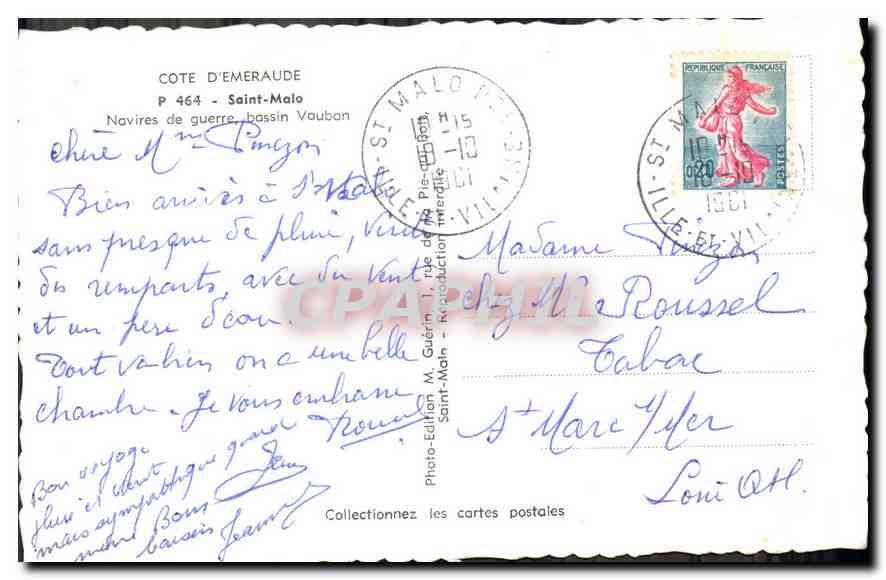 COTE D'EMERAUDE
P 464 - Saint-Malo
Navires de guerre, bassin Vauban
chère Mme Pinzon
Bien arrivés à St Malo
sans presque de pluie, visite
des remparts, avec du vent
et un peu d'eau.
Tout va bien on a une belle
chambre. Je vous embrasse
Bon voyage
pluie et vent
mais sympathique quand
même Bons
baisers
Photo-Edition M. Guérin, 1, rue de la Pie-qui-Boit,
Saint-Malo - Reproduction interdite
Collectionnez les cartes postales
CPAPHIL
ST MALO
15
10-10
1961
ILLE-ET-VILAINE
REPUBLIQUE FRANÇAISE
0,20
POSTES
ST MALO
10 H
10-10
1961
ILLE-ET-VILAINE
Madame Pinzon
chez Mme Roussel
Tabac
St Marc s/Mer
Loire Atl.